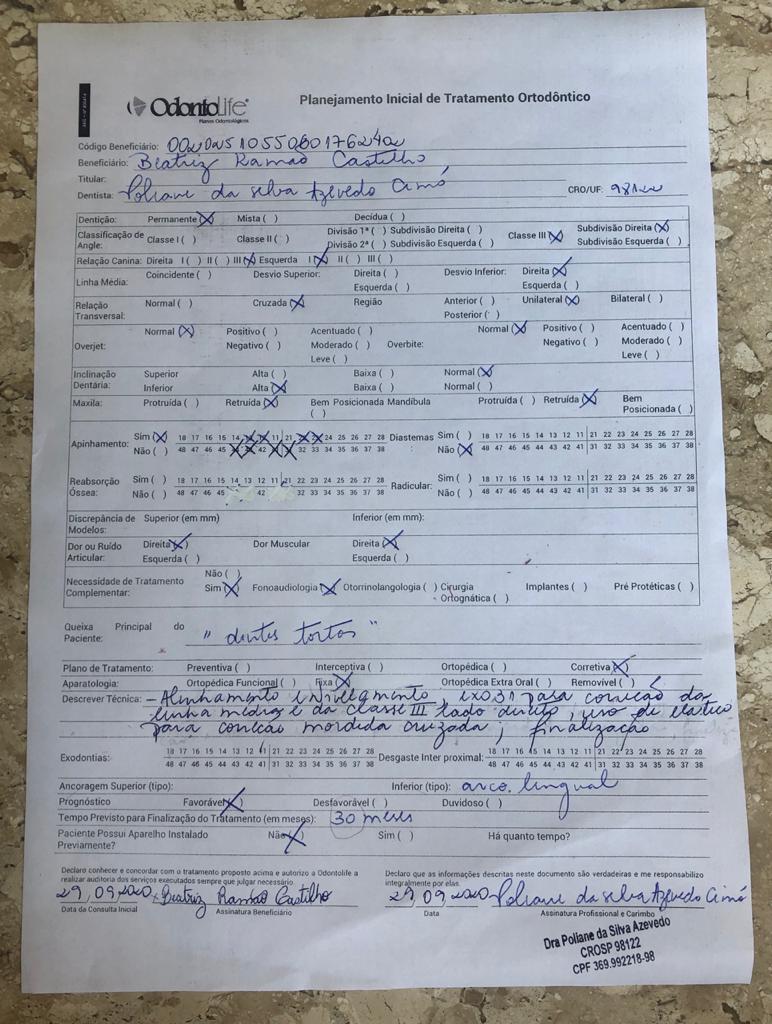 OdontoLife®
Planos Odontológicos
Planejamento Inicial de Tratamento Ortodôntico
Código Beneficiário:
Beneficiário: Beatriz Ramão Castilho
Titular:
Dentista: Poliane da Silva Azevedo Cimó CRO/UF: 98122
Dentição: Permanente (X) Mista ( ) Decídua ( )
Classificação de Angle: Classe I ( ) Classe II ( ) Divisão 1ª ( ) Subdivisão Direita ( ) Classe III (X) Subdivisão Direita (X)
Divisão 2ª ( ) Subdivisão Esquerda ( ) Subdivisão Esquerda ( )
Relação Canina: Direita I ( ) II ( ) III (X) Esquerda I (X) II ( ) III ( )
Linha Média: Coincidente ( ) Desvio Superior: Direita ( ) Desvio Inferior: Direita (X)
Esquerda ( ) Esquerda ( )
Relação Transversal: Normal ( ) Cruzada (X) Região Anterior ( ) Unilateral (X) Bilateral ( )
Posterior ( )
Overjet: Normal (X) Positivo ( ) Acentuado ( ) Overbite: Normal (X) Positivo ( ) Acentuado ( )
Negativo ( ) Moderado ( ) Negativo ( ) Moderado ( )
Leve ( ) Leve ( )
Inclinação Dentária: Superior Alta ( ) Baixa ( ) Normal (X)
Inferior Alta (X) Baixa ( ) Normal ( )
Maxila: Protruída ( ) Retruída (X) Bem Posicionada ( ) Mandíbula Protruída ( ) Retruída (X) Bem Posicionada ( )
Apinhamento: Sim (X) 18 17 16 15 14 11 21 24 25 26 27 28 Diastemas Sim ( ) 18 17 16 15 14 13 12 11 21 22 23 24 25 26 27 28
Não ( ) 48 47 46 45 42 32 33 34 35 36 37 38 Não (X) 48 47 46 45 44 43 42 41 31 32 33 34 35 36 37 38
Reabsorção Óssea: Sim ( ) 18 17 16 15 14 13 12 11 21 22 23 24 25 26 27 28 Radicular: Sim ( ) 18 17 16 15 14 13 12 11 21 22 23 24 25 26 27 28
Não ( ) 48 47 46 45 42 31 32 33 34 35 36 37 38 Não ( ) 48 47 46 45 44 43 42 41 31 32 33 34 35 36 37 38
Discrepância de Modelos: Superior (em mm) Inferior (em mm):
Dor ou Ruído Articular: Direita (X) Dor Muscular Direita (X)
Esquerda ( ) Esquerda ( )
Necessidade de Tratamento Complementar: Não ( )
Sim (X) Fonoaudiologia (X) Otorrinolangologia ( ) Cirurgia Ortognática ( ) Implantes ( ) Pré Protéticas ( )
Queixa Principal do Paciente: "dentes tortos"
Plano de Tratamento: Preventiva ( ) Interceptiva ( ) Ortopédica ( ) Corretiva (X)
Aparatologia: Ortopédica Funcional ( ) Fixa (X) Ortopédica Extra Oral ( ) Removível ( )
Descrever Técnica: - Alinhamento e Nivelamento, exo 31 para correção da
linha média e da Classe III lado direito, uso de elástico
para correção mordida cruzada, finalização
Exodontias: 18 17 16 15 14 13 12 11 21 22 23 24 25 26 27 28 Desgaste Inter proximal: 18 17 16 15 14 13 12 11 21 22 23 24 25 26 27 28
48 47 46 45 44 43 42 41 31 32 33 34 35 36 37 38 48 47 46 45 44 43 42 41 31 32 33 34 35 36 37 38
Ancoragem Superior (tipo): Inferior (tipo): arco lingual
Prognóstico Favorável (X) Desfavorável ( ) Duvidoso ( )
Tempo Previsto para Finalização do Tratamento (em meses): 30 meses
Paciente Possui Aparelho Instalado Previamente? Não (X) Sim ( ) Há quanto tempo?
Declaro conhecer e concordar com o tratamento proposto acima e autorizo a Odontolife a
realizar auditoria dos serviços executados sempre que julgar necessário.
Declaro que as informações descritas neste documento são verdadeiras e me responsabilizo
integralmente por elas.
29, 09, 2020 Beatriz Ramão Castilho
Data da Consulta Inicial Assinatura Beneficiário
29, 09, 2020 Poliane da Silva Azevedo Cimó
Data Assinatura Profissional e Carimbo
Dra Poliane da Silva Azevedo
CROSP 98122
CPF 369.992218-98